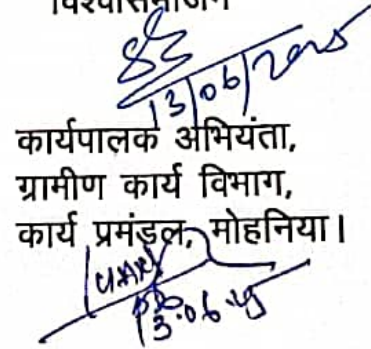 विश्वासभाजन
13/06/2025
कार्यपालक अभियंता,
ग्रामीण कार्य विभाग,
कार्य प्रमंडल, मोहनिया।
13.06.25